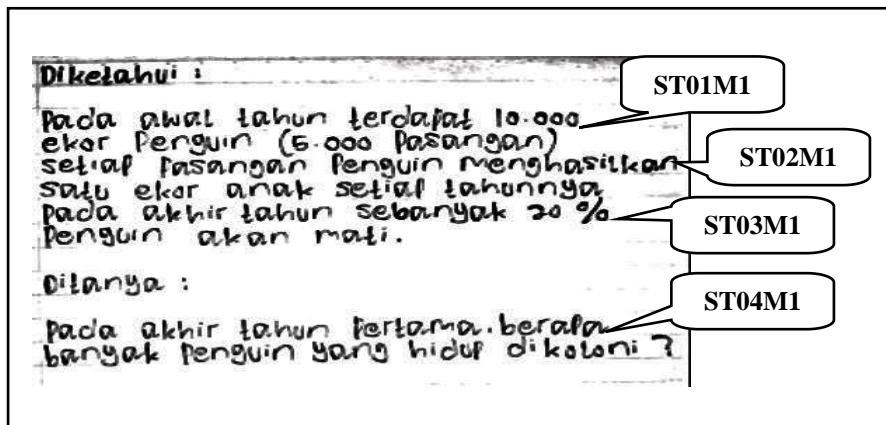 Diketahui :
Pada awal tahun terdapat 10.000
ekor Penguin (5.000 Pasangan)
setiap Pasangan Penguin menghasilkan
satu ekor anak setiap tahunnya
Pada akhir tahun sebanyak 20 %
Penguin akan mati.
Ditanya :
Pada akhir tahun Pertama. berapa
banyak Penguin yang hidup dikoloni ?
ST01M1
ST02M1
ST03M1
ST04M1